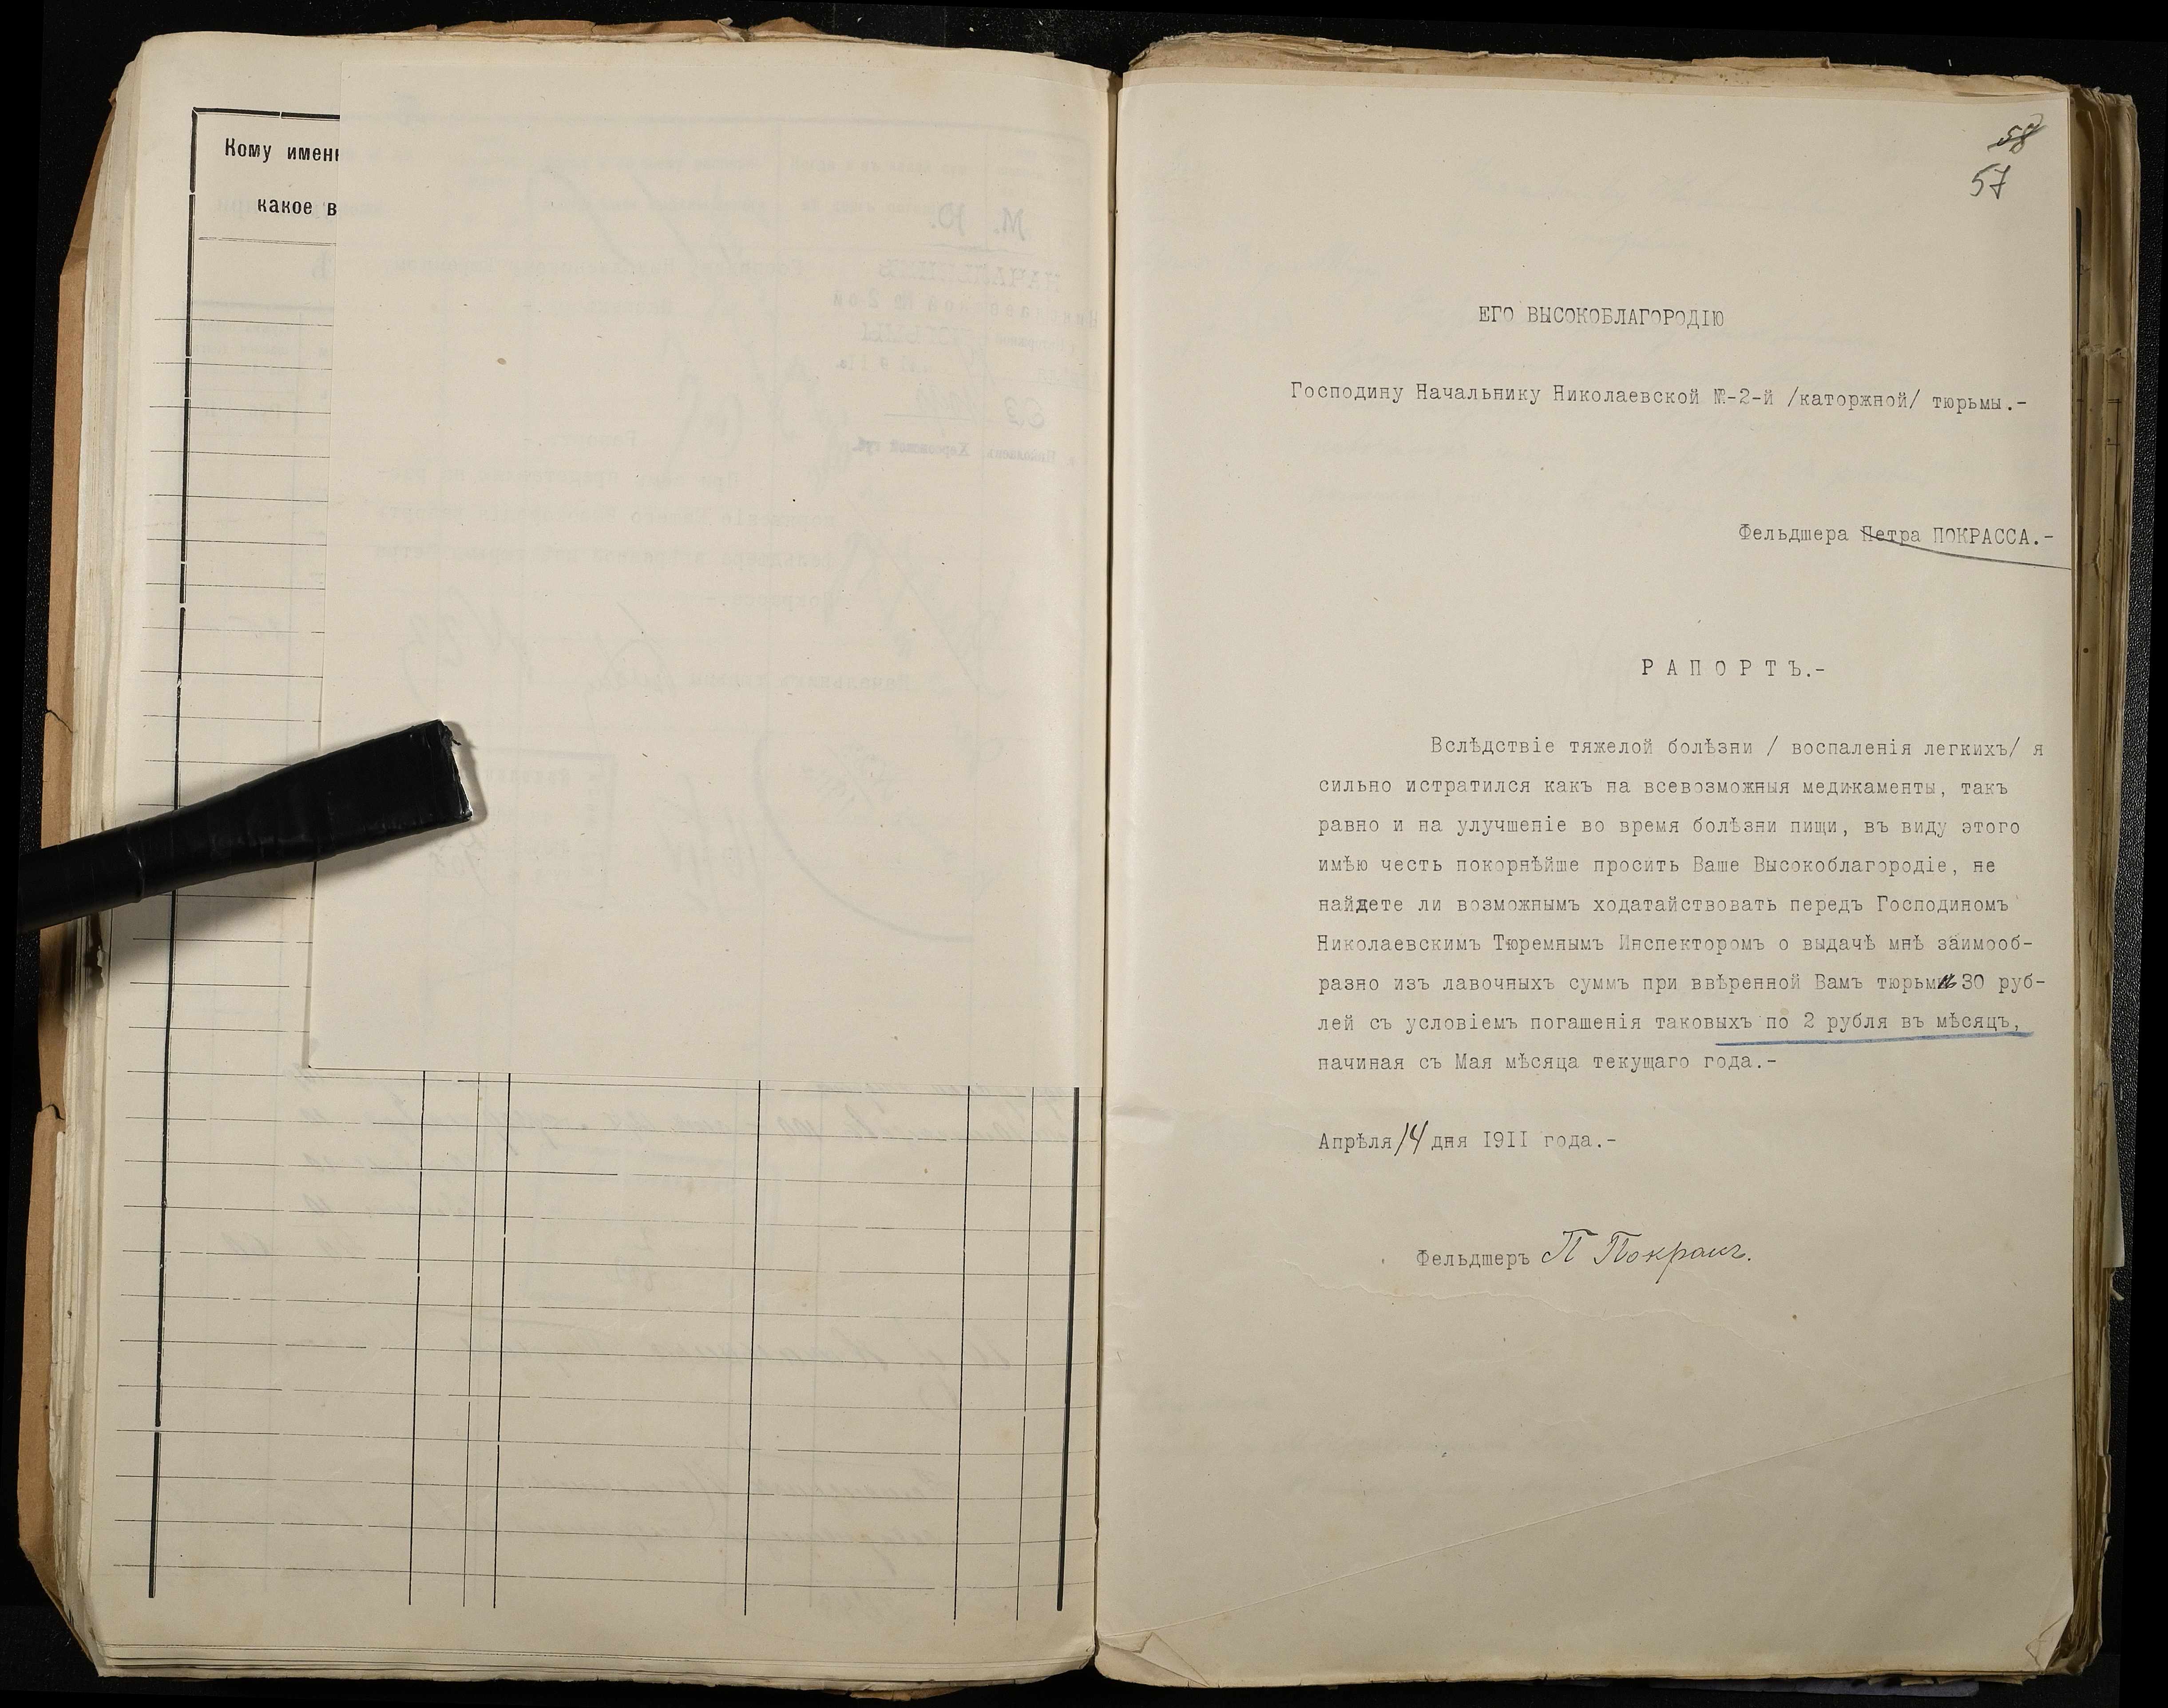 Кому имен
какое в
58
57
ЕГО ВЫСОКОБЛАГОРОДІЮ
Господину Начальнику Николаевской №-2-й /каторжной/ тюрьмы.-
Фельдшера Петра ПОКРАССА.-
РАПОРТЪ.-
Вслѣдствіе тяжелой болѣзни / воспаленія легкихъ/ я
сильно истратился какъ на всевозможныя медикаменты, такъ
равно и на улучшеніе во время болѣзни пищи, въ виду этого
имѣю честь покорнѣйше просить Ваше Высокоблагородіе, не
найдете ли возможнымъ ходатайствовать передъ Господиномъ
Николаевскимъ Тюремнымъ Инспекторомъ о выдачѣ мнѣ заимооб-
разно изъ лавочныхъ суммъ при ввѣренной Вамъ тюрьмѣ 30 руб-
лей съ условіемъ погашенія таковыхъ по 2 рубля въ мѣсяцъ,
начиная съ Мая мѣсяца текущаго года.-
Апрѣля 14 дня 1911 года.-
Фельдшеръ П Покрасъ.